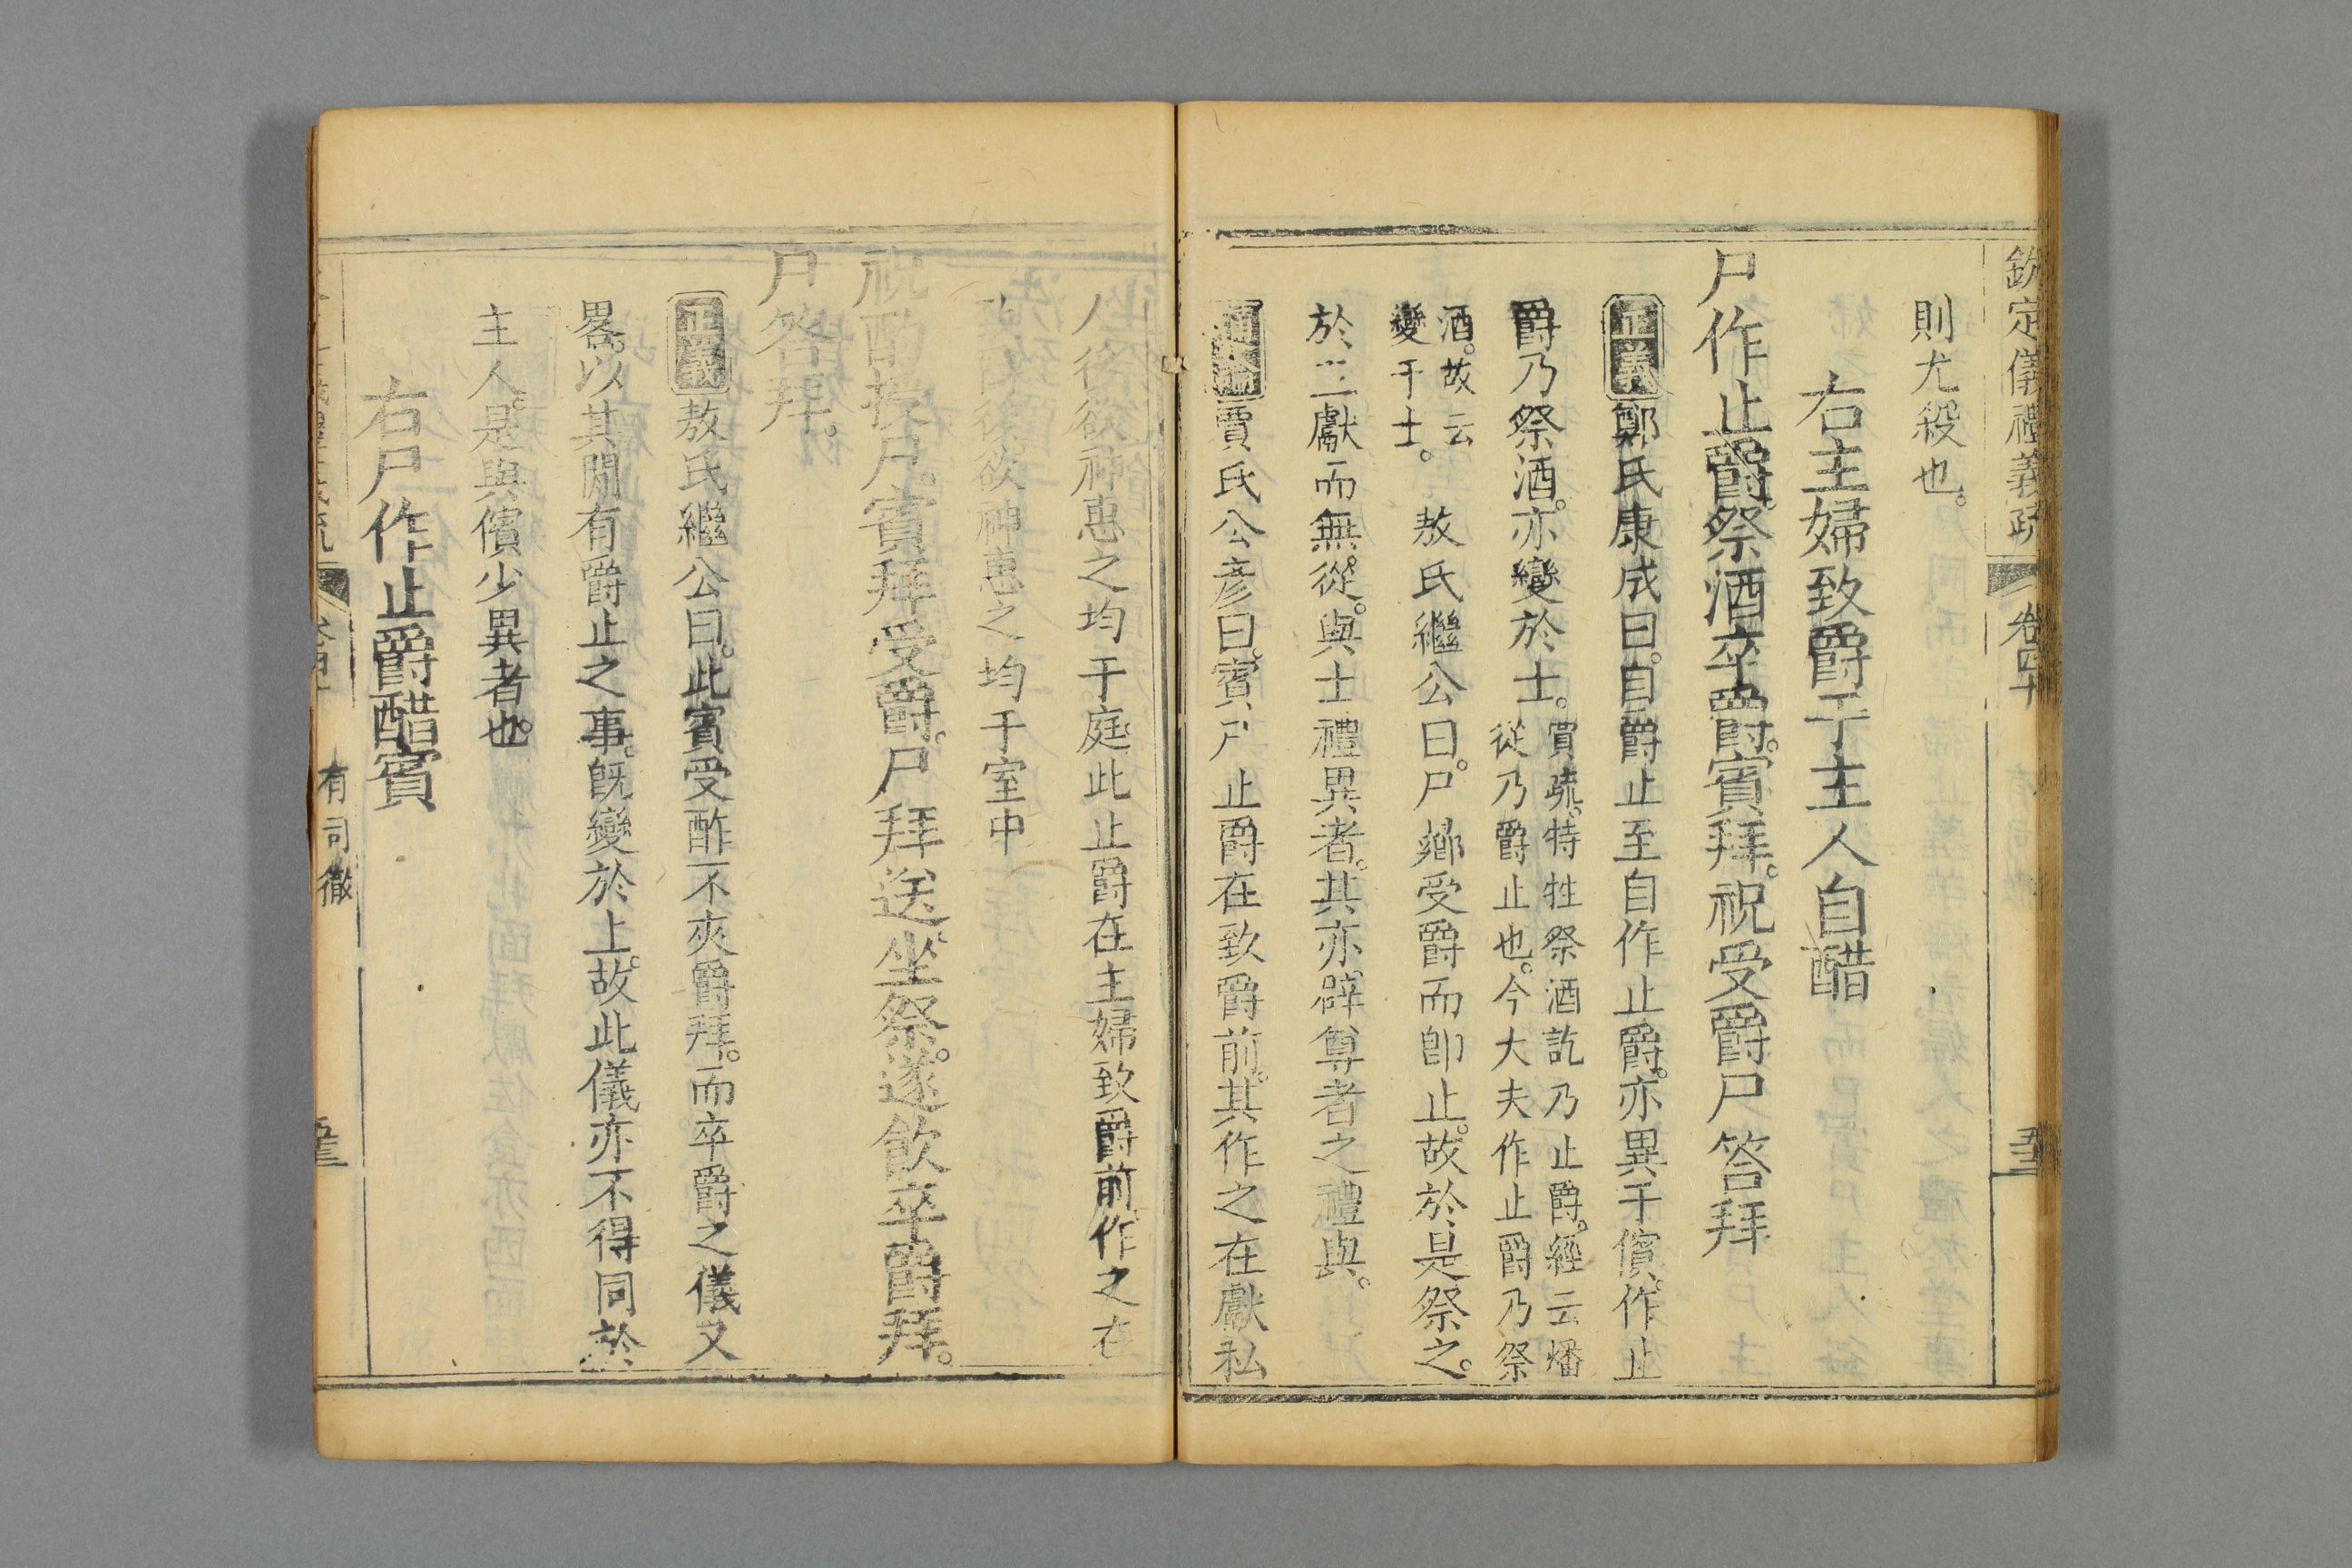 欽定儀禮義疏 卷四十
則尤殺也。
右主婦致爵于主人自醋
尸作止爵祭酒卒爵。賓拜。祝受爵尸答拜
正義 鄭氏康成曰。自爵止至自作止爵。亦異于儐。作止
爵乃祭酒。亦變於士。賈疏。特牲祭酒訖乃止爵。經云燔
從乃爵止也。今大夫作止爵乃祭
酒。故云
變于士。 敖氏繼公曰。尸曏受爵而卽止。故於是祭之。
於三獻而無從。與士禮異者。其亦辟尊者之禮與。
通論 賈氏公彥曰。賓尸止爵在致爵前。其作之在獻私
人後欲神惠之均于庭此止爵在主婦致爵前作之在
後欲神惠之均于室中
祝酌授尸。賓拜受爵。尸拜送。坐祭。遂飲卒爵拜。
尸答拜。
正義 敖氏繼公曰。此賓受酢不夾爵拜。而卒爵之儀又
畧。以其閒有爵止之事。旣變於上。故此儀亦不得同於
主人。是與儐少異者也。
右尸作止爵醋賓
有司徹